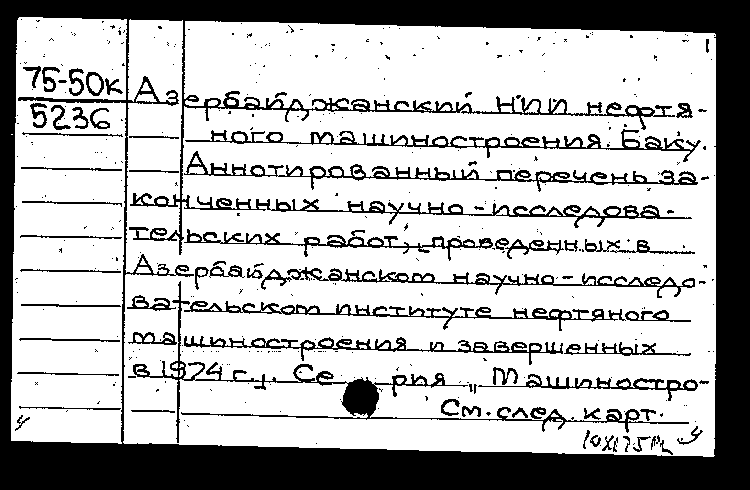 75-50к
5236
Азербайджанский НИИ нефтя-
ного машиностроения. Баку.
Аннотированный перечень за-
конченных научно-исследова-
тельских работ, проведенных в
Азербайджанском научно-исследо-
вательском институте нефтяного
машиностроения и завершенных
в 1974 г. Серия „Машиностро-
См. след. карт.